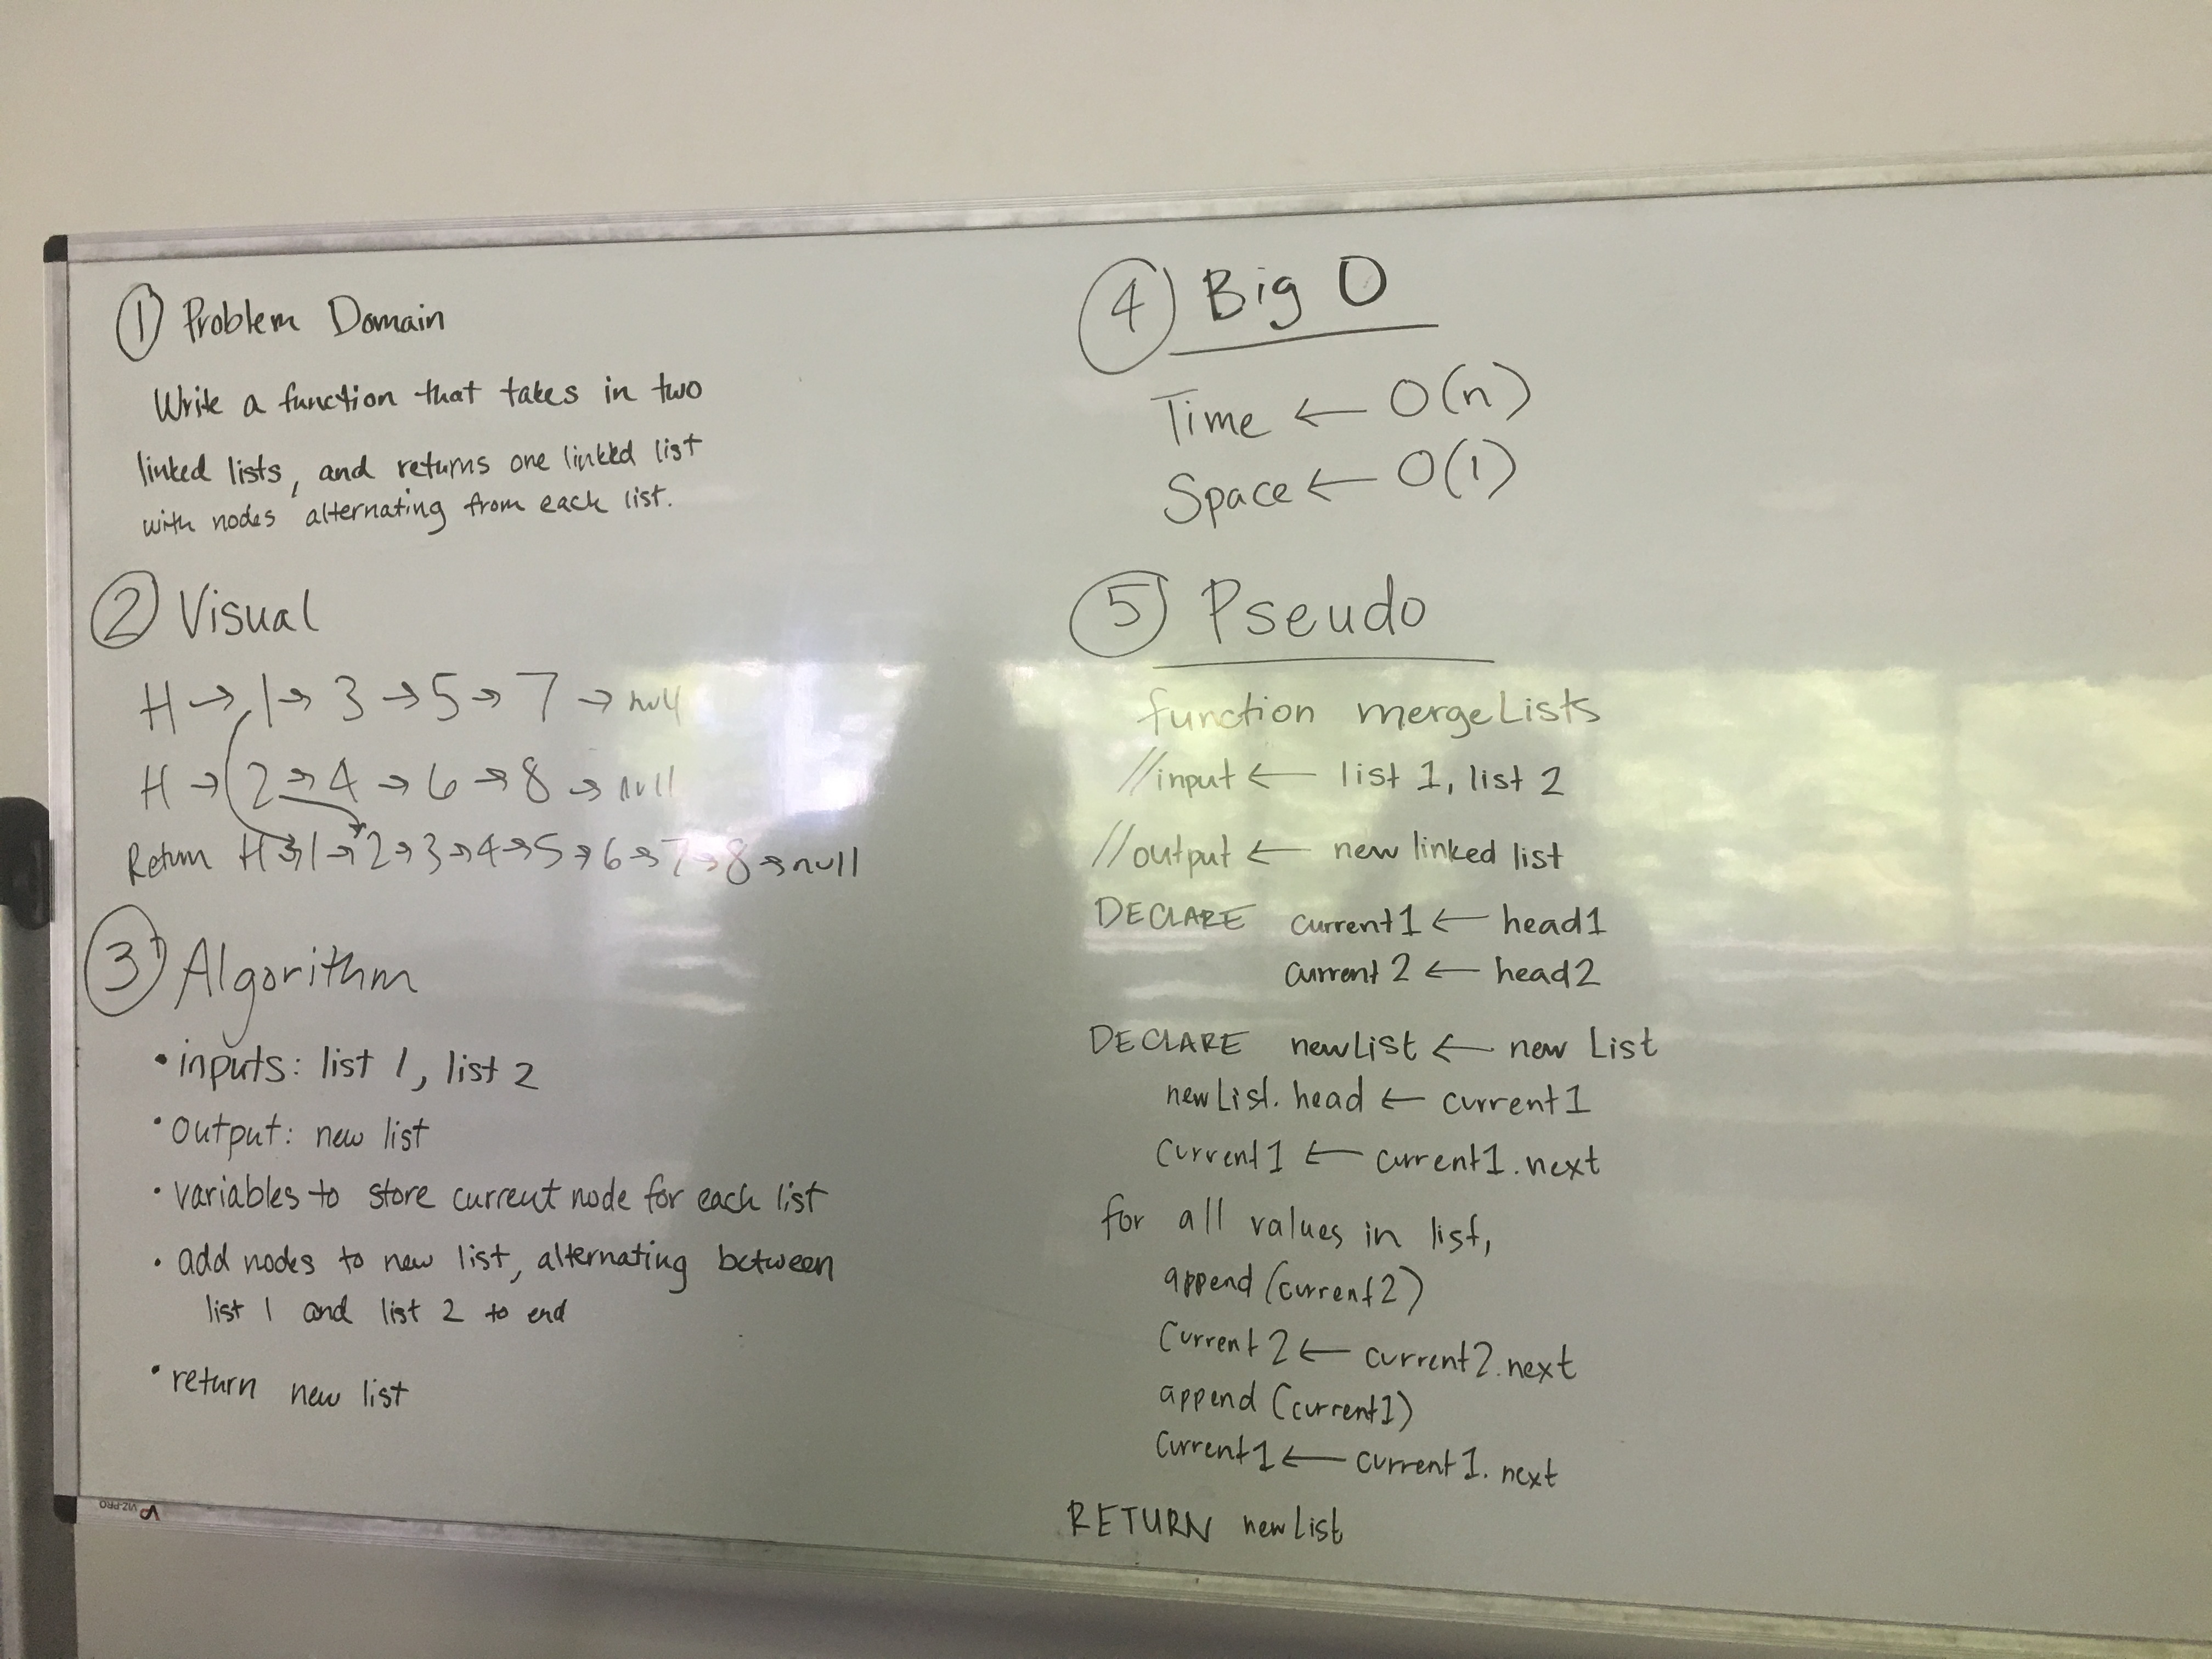 ① Problem Domain
Write a function that takes in two
linked lists, and returns one linked list
with nodes alternating from each list.
② Visual
H → 1 → 3 → 5 → 7 → null
H → 2 → 4 → 6 → 8 → null
Return H → 1 → 2 → 3 → 4 → 5 → 6 → 7 → 8 → null
③ Algorithm
• inputs: list 1, list 2
• Output: new list
• variables to store current node for each list
• add nodes to new list, alternating between
list 1 and list 2 to end
• return new list
④ Big O
Time ← O(n)
Space ← O(1)
⑤ Pseudo
function mergeLists
//input ← list 1, list 2
//output ← new linked list
DECLARE current1 ← head1
current2 ← head2
DECLARE newList ← new List
newList.head ← current1
Current1 ← current1.next
for all values in list,
append(current2)
Current2 ← current2.next
append(current1)
Current1 ← current1.next
RETURN newList
VIZ-PRO